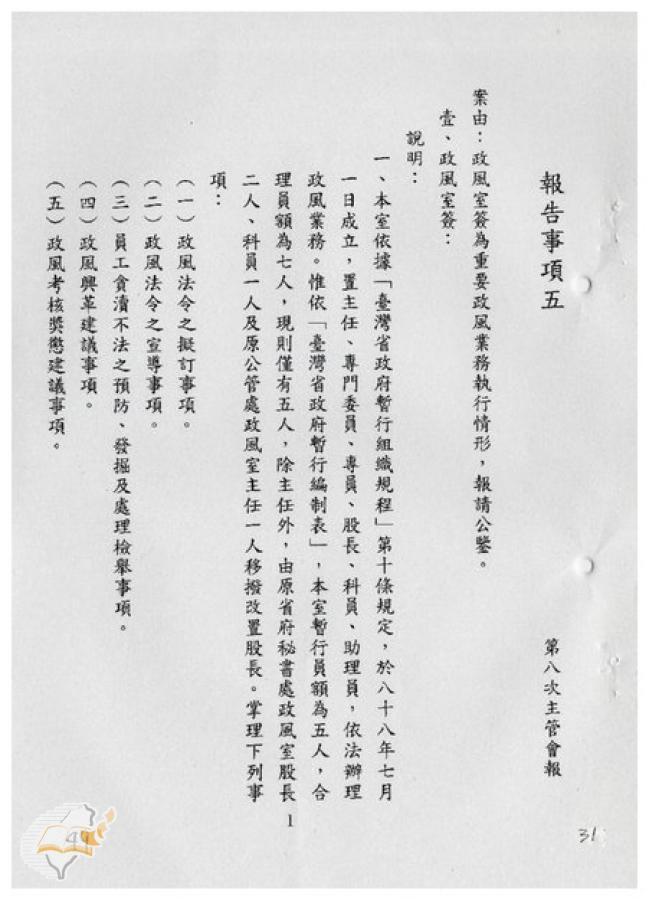 報告事項五
第八次主管會報
案由：政風室簽為重要政風業務執行情形，報請公鑒。
壹、政風室簽：
說明：
一、本室依據「臺灣省政府暫行組織規程」第十條規定，於八十八年七月
一日成立，置主任、專門委員、專員、股長、科員、助理員，依法辦理
政風業務。惟依「臺灣省政府暫行編制表」，本室暫行員額為五人，合
理員額為七人，現則僅有五人，除主任外，由原省府秘書處政風室股長
二人、科員一人及原公管處政風室主任一人移撥改置股長。掌理下列事
項：
（一）政風法令之擬訂事項。
（二）政風法令之宣導事項。
（三）員工貪瀆不法之預防、發掘及處理檢舉事項。
（四）政風興革建議事項。
（五）政風考核獎懲建議事項。
1
31